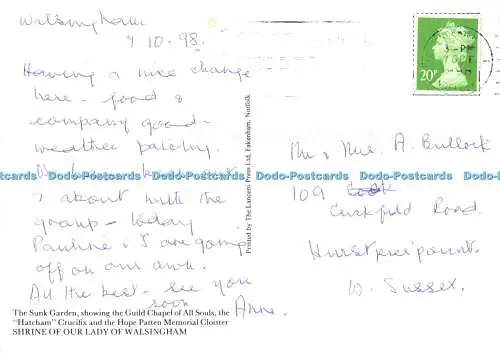 Walsingham
7.10.98.
Having a nice change
here - food &
company good -
weather patchy.
& about with the
group - today
Pauline & I are going
off on our own.
All the best - see you
soon Anne.
Mr & Mrs. A. Bullock
109
Cuckfield Road.
Hurstpierpoint.
W. Sussex.
20P
Printed by The Lanceni Press Ltd, Fakenham, Norfolk
Dodo-Postcards Dodo-Postcards Dodo-Postcards Dodo-Postcards Dodo-Postcards
The Sunk Garden, showing the Guild Chapel of All Souls, the
"Hatcham" Crucifix and the Hope Patten Memorial Cloister
SHRINE OF OUR LADY OF WALSINGHAM